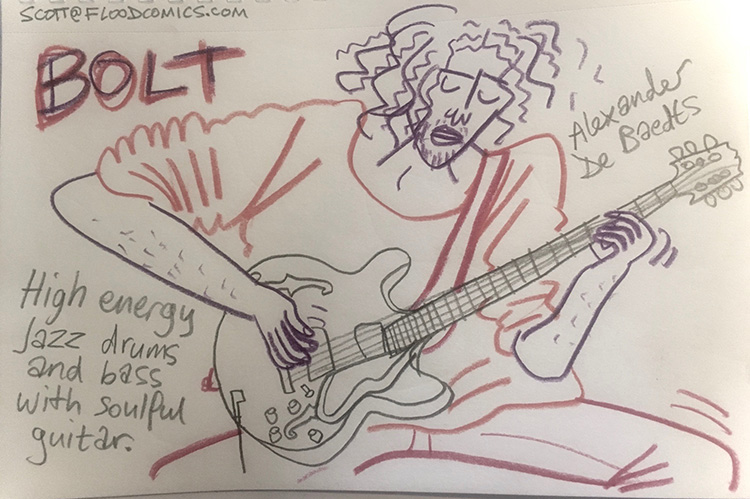 SCOTT@FLOODCOMICS.COM
BOLT
Alexander
De Baedts
High energy
Jazz drums
and bass
with soulful
guitar.